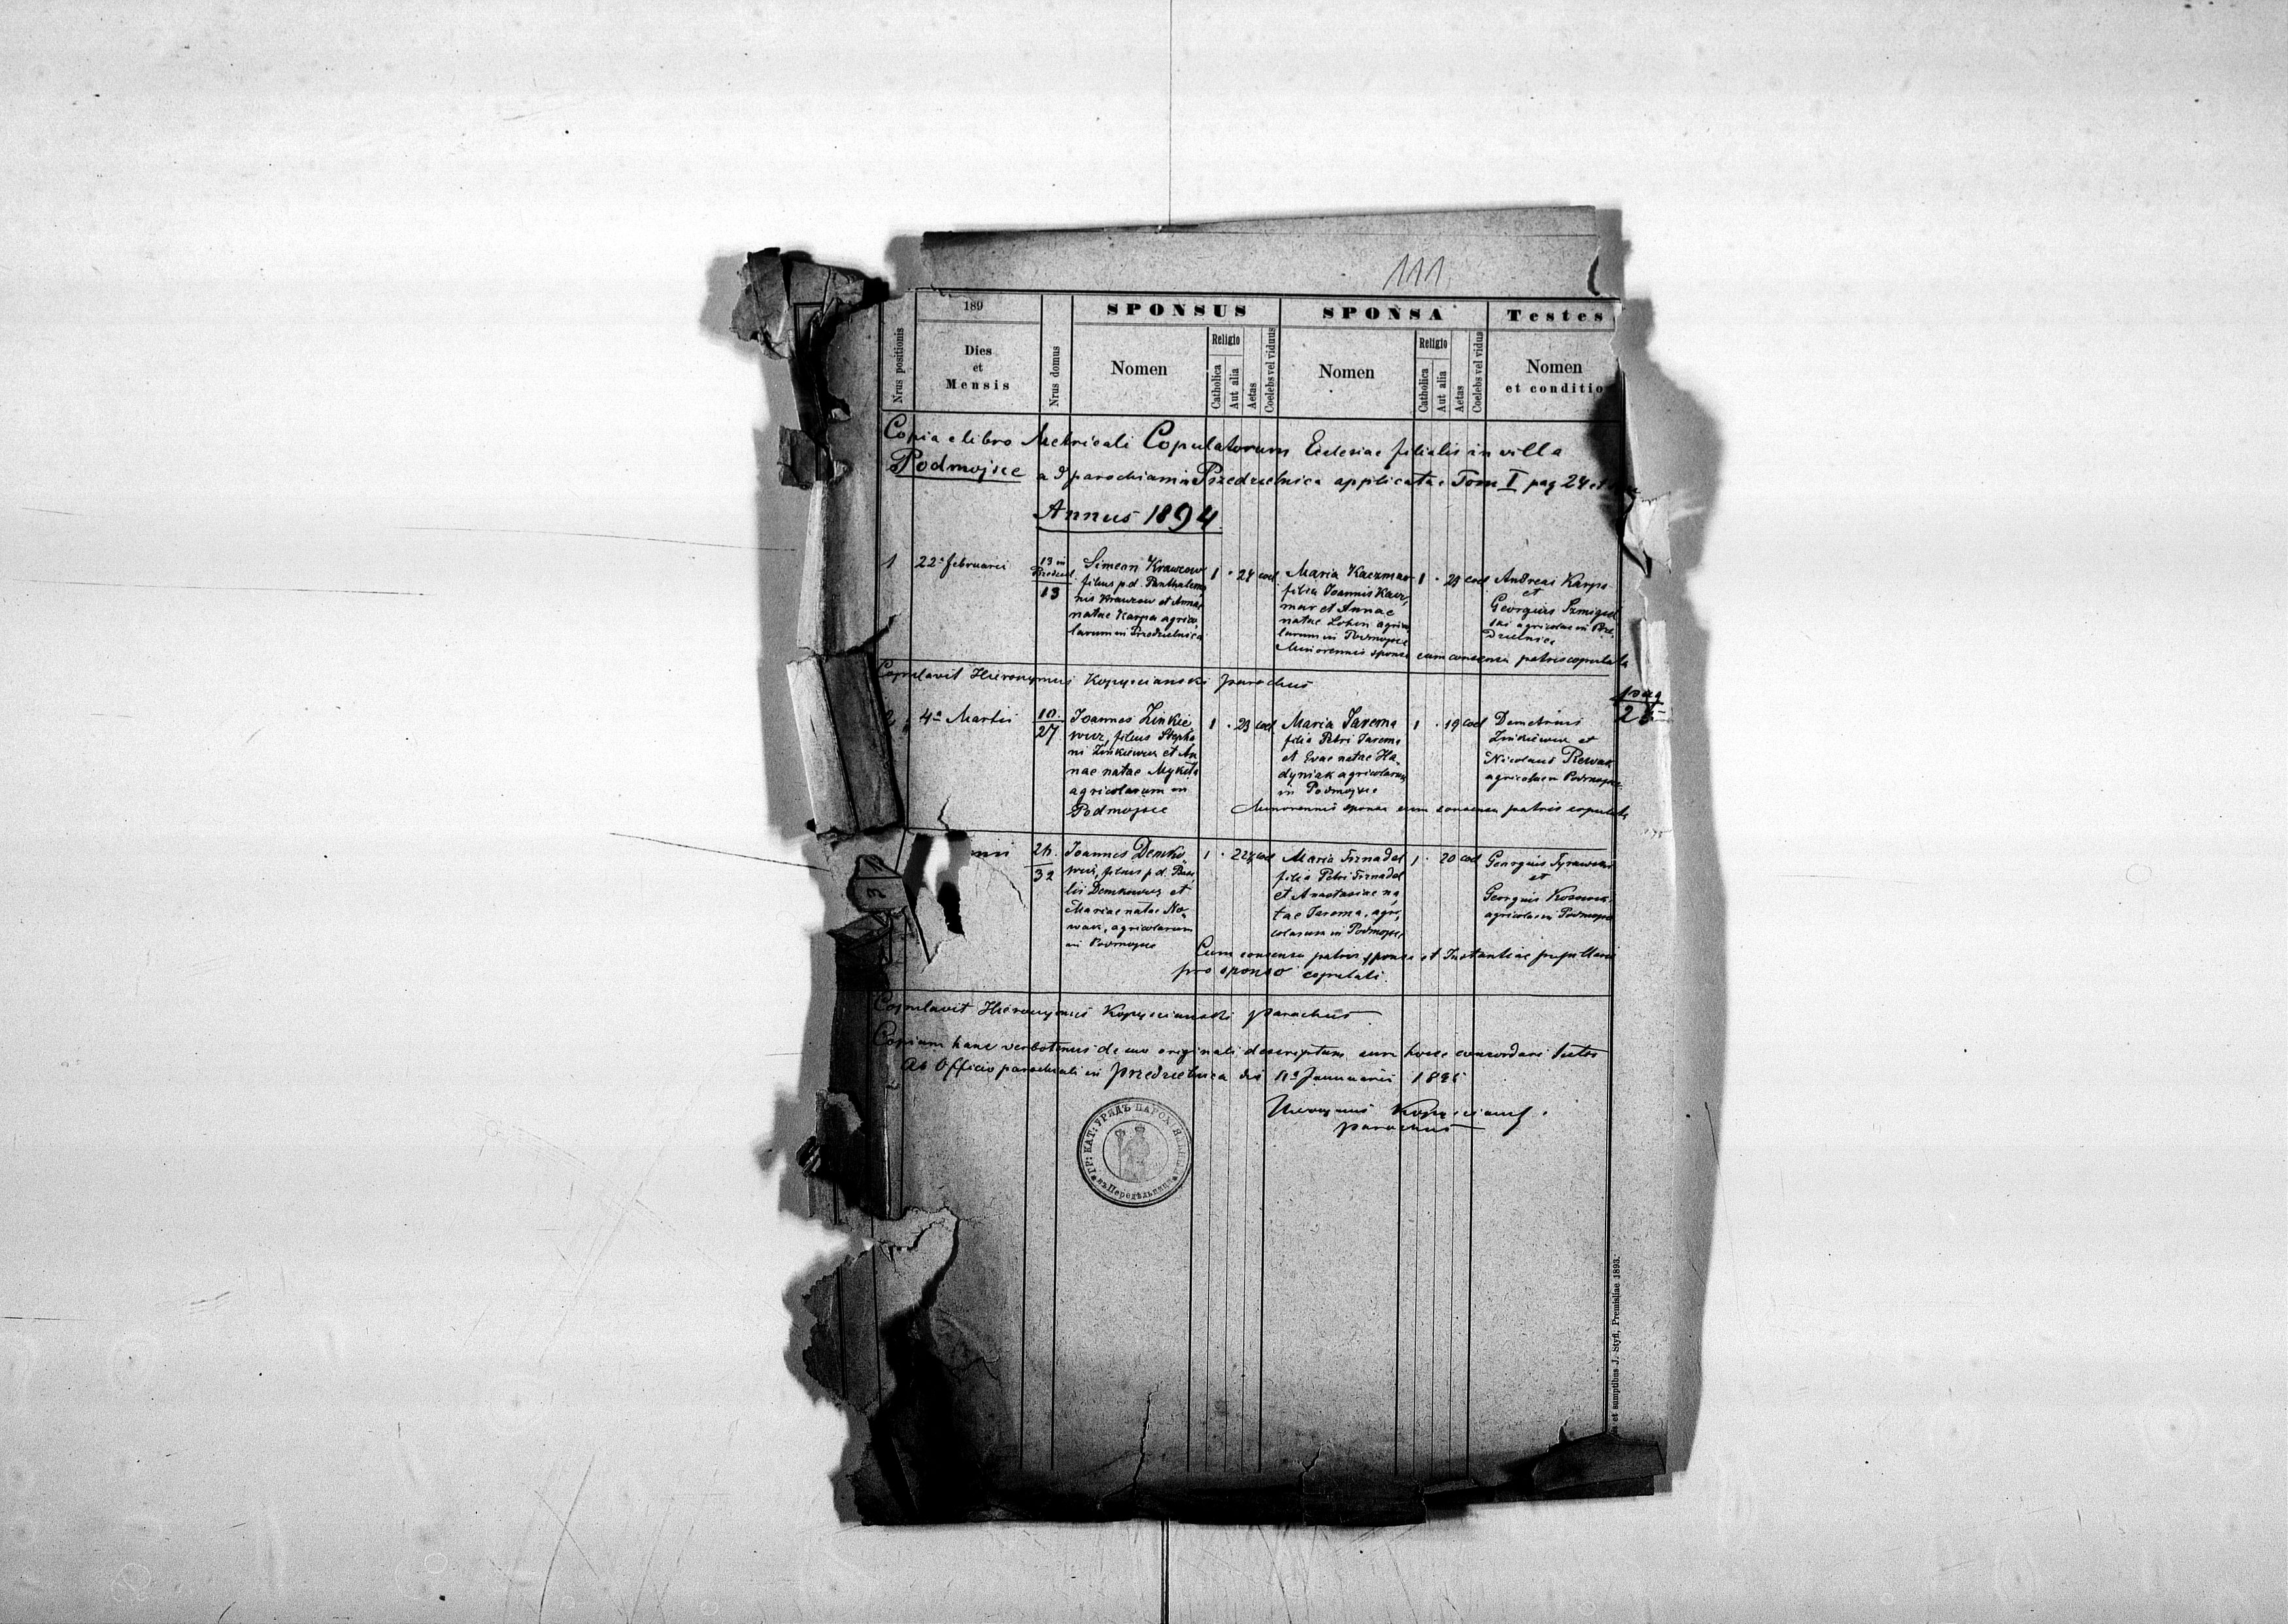 111
189
SPONSUS
SPONSA
Testes
Nrus positionis
Dies
et
Mensis
Nrus domus
Nomen
Religio
Catholica
Aut alia
Aetas
Coelebs vel viduus
Nomen
Religio
Catholica
Aut alia
Aetas
Coelebs vel vidua
Nomen
et conditio
Copia e libro Metricali Copulatorum Eclesiae filialis in villa
Podmojsce ad parochiam in Przedzielnica applicatae Tom I pag 24 et
Annus 1894
1 22a februarii
13 in
13
Simeon Krawcow
filius p.d. Panthalemo
nis Krawcow et Annae
natae Karpa agrico
larum in Przedzielnica
1 · 24 coel
Maria Kaczmar
filia Joannis Kacz
mar et Annae
natae agrico
larum in Podmojsce
1 · 23 coel
Andreas Karpa
et
Georgius Szmigiel
ski agricolae in Prze
dzielnica
Minorennis sponsa cum consensu patris copulata
Copulavit Hieronymus Kopyscianski parochus
pag
2 4a Martii
10
27
Joannes Zinkie
wicz, filius Stepha
ni Zinkiewicz et An
nae natae Mykita
agricolarum in
Podmojsce
1 · 23 coel
Maria Jarema
filia Petri Jarema
et Evae natae Ha
dyniak agricolarum
in Podmojsce
1 · 19 coel
Demetrius
Zinkiewicz et
Nicolaus Rewak
agricolae in Podmojsce
Minorennis sponsa cum consensu patris copulata
3
32
Joannes Demko
wicz, filius p.d. Basi
lii Demkowicz et
Mariae natae No
wak, agricolarum
in Podmojsce
1 · 22 coel
Maria Trznadel
filia Petri Trznadel
et Anastasiae na
tae Jarema, agri
colarum in Podmojsce
1 · 20 coel
Georgius
et
Georgius
agricolae in Podmojsce
Cum consensu patris sponsae et Instantiae pupillaris
pro sponso copulati.
Copulavit Hieronymus Kopyscianski parochus
Copiam hanc verbotenus de suo originali descriptam cum hocce concordare testor
Ab Officio parochiali in Przedzielnica die Januarii 1895
Hieronymus Kopyscianski
parochus
ГР: КАТ: УРЯДЪ ПАРОХ
въ Передѣльници
et sumptibus J. Styfi, Premisliae 1893.